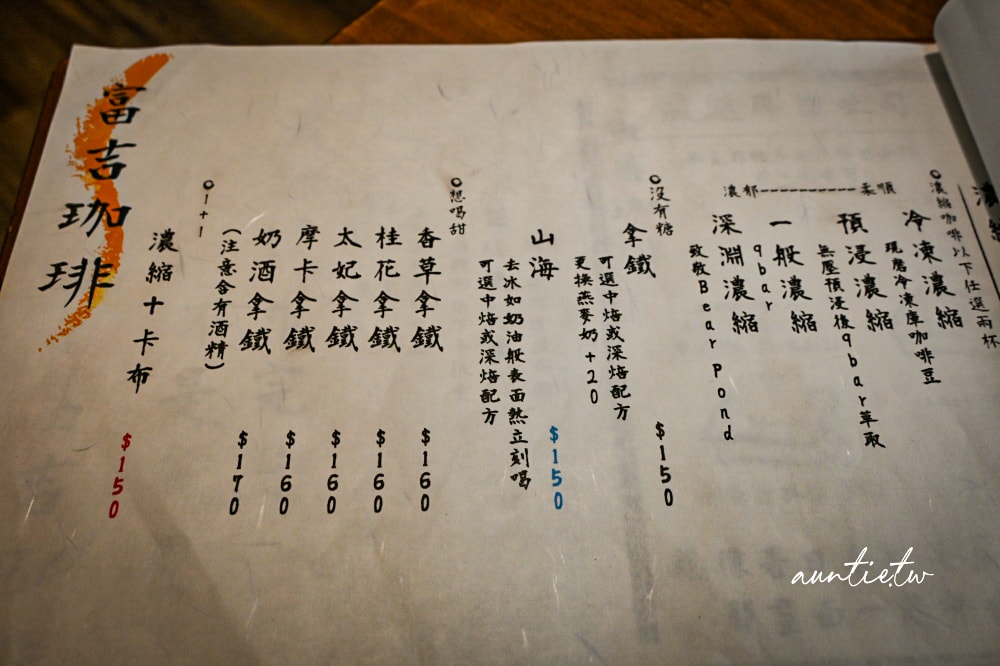 濃縮咖啡以下任選兩杯
冷凍濃縮
現磨冷凍庫咖啡豆
預浸濃縮
無壓預浸後9bar萃取
一般濃縮
9bar
深淵濃縮
致敬Bear Pond
濃郁----------柔順
沒有糖
拿鐵
$150
可選中焙或深焙配方
更換燕麥奶+20
山海
$150
去冰如奶油般表面熱立刻喝
可選中焙或深焙配方
想喝甜
香草拿鐵
$160
桂花拿鐵
$160
太妃拿鐵
$160
摩卡拿鐵
$160
奶酒拿鐵
$170
(注意含有酒精)
1+1
濃縮十卡布
$150
富吉珈琲
auntie.tw